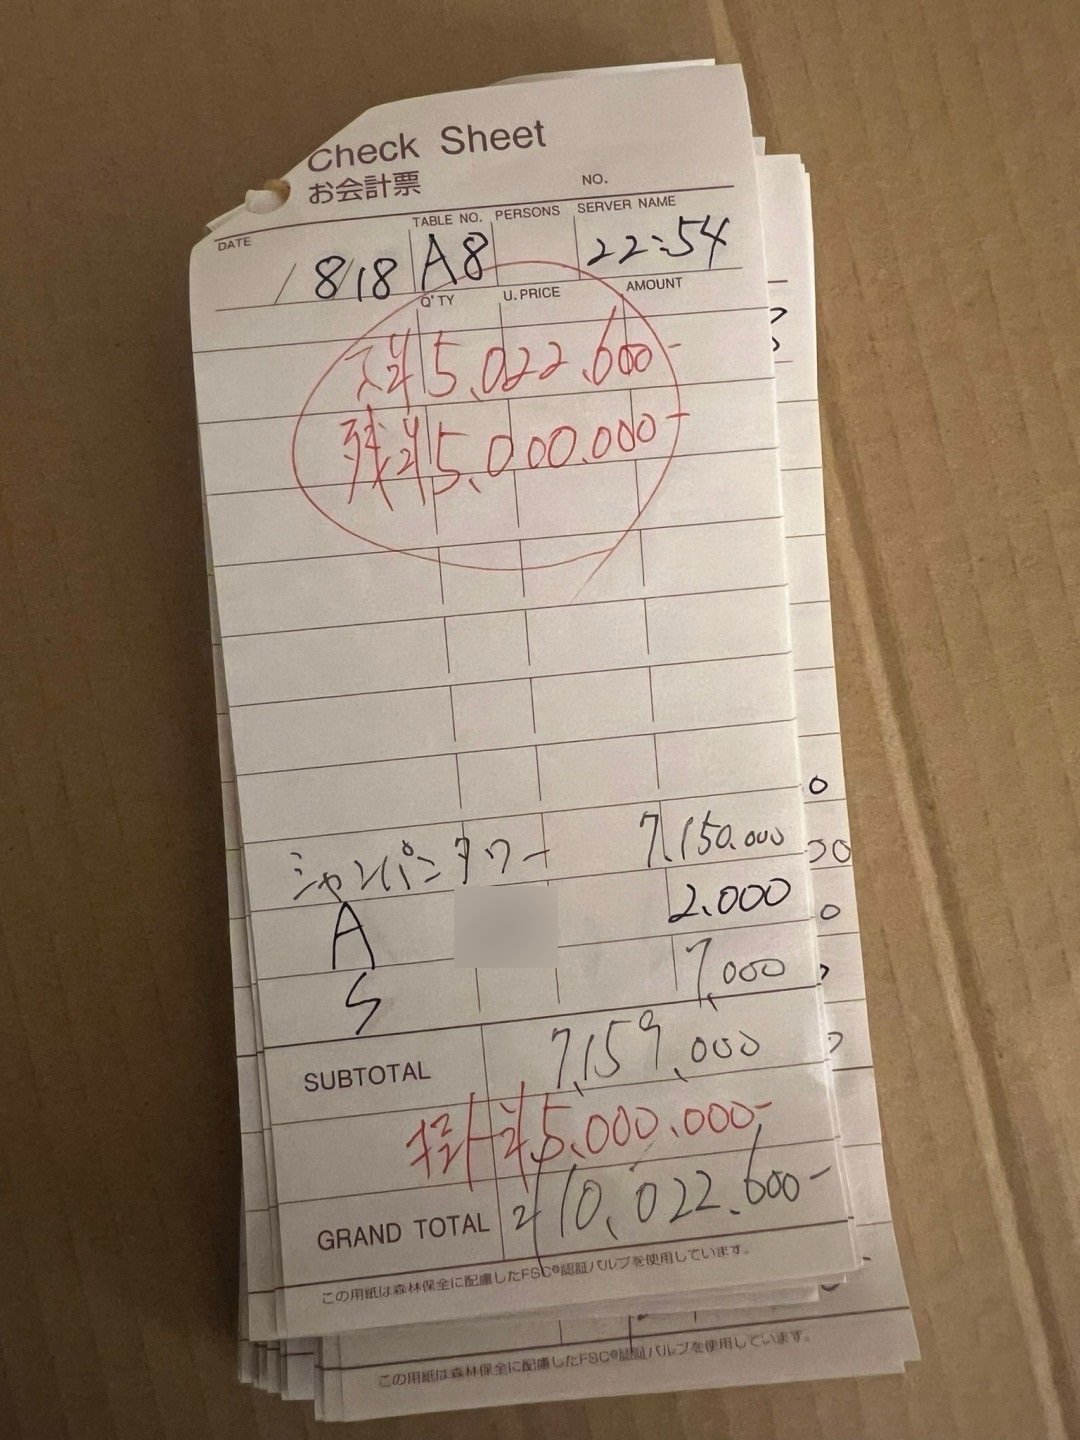 Check Sheet
お会計票
NO.
DATE TABLE NO. PERSONS SERVER NAME
/ 8/18 A8 22:54
Q'TY U.PRICE AMOUNT
入¥5,022,600-
残¥5,000,000-
シャンパンタワー 7,150,000
A 2,000
S 7,000
SUBTOTAL 7,159,000
¥5,000,000-
GRAND TOTAL ¥10,022,600-
この用紙は森林保全に配慮したFSC®認証パルプを使用しています。
この用紙は森林保全に配慮したFSC®認証パルプを使用しています。